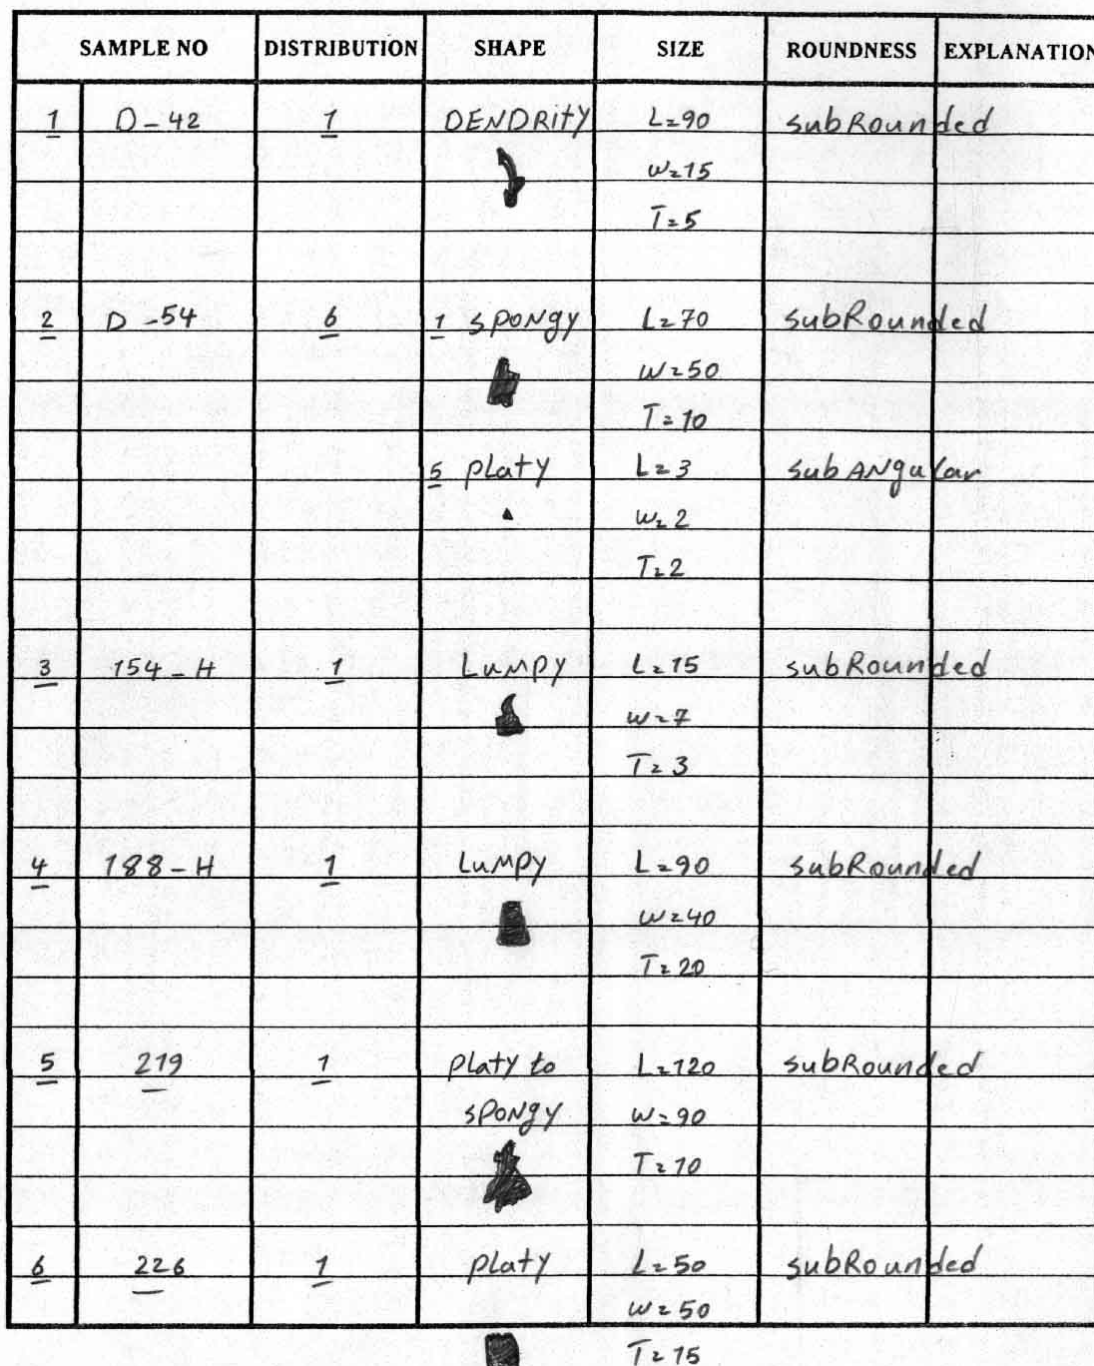 SAMPLE NO DISTRIBUTION SHAPE SIZE ROUNDNESS EXPLANATION
1 D-42 1 DENDRITY L=90 subRounded
W=15
T=5
2 D-54 6 1 SPONGY L=70 subRounded
W=50
T=10
5 Platy L=3 subANgular
W=2
T=2
3 154-H 1 LuMPY L=15 subRounded
W=7
T=3
4 188-H 1 LuMPY L=90 subRounded
W=40
T=20
5 219 1 Platy to L=120 subRounded
SPONgY W=90
T=10
6 226 1 Platy L=50 subRounded
W=50
T=15